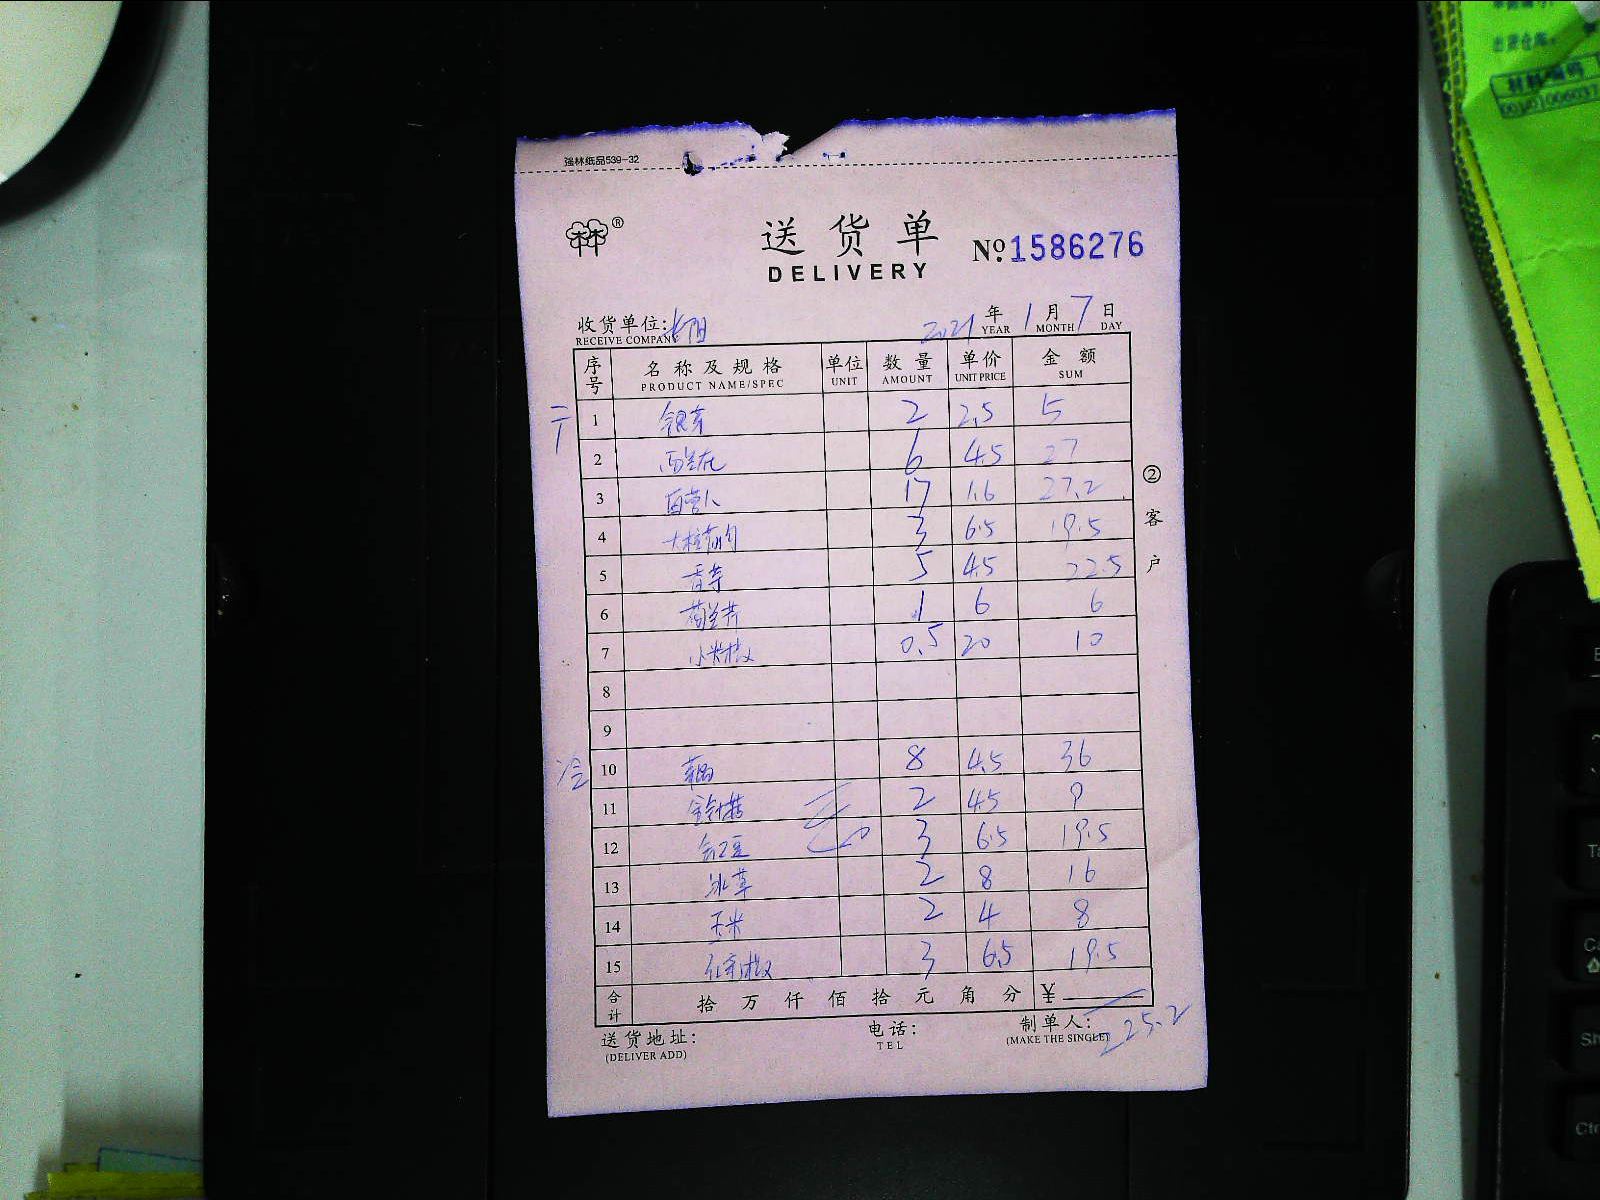 强林纸品539-32
送货单
DELIVERY
№1586276
收货单位:
RECEIVE COMPANY
2021 年 1 月 7 日
YEAR MONTH DAY
序号 名称及规格 单位 数量 单价 金额
PRODUCT NAME/SPEC UNIT AMOUNT UNIT PRICE SUM
1 银芽 2 2.5 5
2 西兰花 6 4.5 27
3 17 1.6 27.2
4 3 6.5 19.5
5 5 4.5 22.5
6 1 6 6
7 小米椒 0.5 20 10
8
9
10 8 4.5 36
11 金针菇 2 4.5 9
12 3 6.5 19.5
13 冰草 2 8 16
14 玉米 2 4 8
15 3 6.5 19.5
合计 拾 万 仟 佰 拾 元 角 分 ¥
225.2
送货地址: 电话: 制单人:
(DELIVER ADD) TEL (MAKE THE SINGLE)
②客户
材料编码